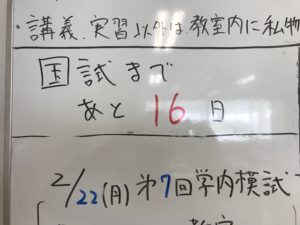 ・講義、実習以外は教室内に私物
国試まで
あと 16 日
2/22(月) 第7回学内模試